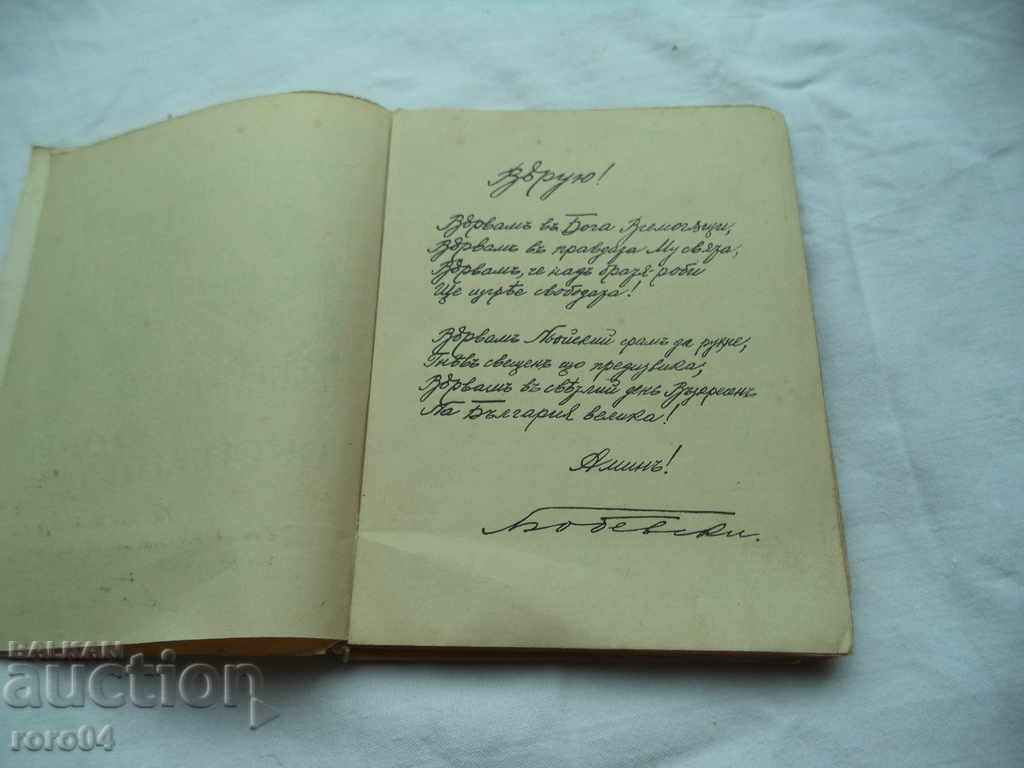 Вѣрую!
Вѣрвамъ въ Бога Всемогѫщи,
Вѣрвамъ въ правдата Му свята,
Вѣрвамъ, че надъ братя-роби
Ще изгрѣе свободата!
Вѣрвамъ Ньойский срамъ да рухне,
Гнѣвъ свещенъ що предизвика,
Вѣрвамъ въ свѣтлий день Възкресенъ
На България велика!
Аминъ!
Бобевски.
BALKAN
auction
roro04